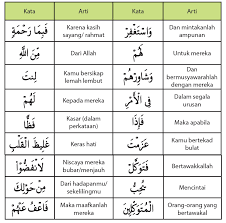 Kata Arti Kata Arti
فَبِمَا رَحْمَةٍ Karena kasih sayang/ rahmat وَاسْتَغْفِرْ Dan mintakanlah ampunan
Dari Allah لَهُمْ Untuk mereka
لِنْتَ Kamu bersikap lemah lembut وَشَاوِرْهُمْ Dan bermusyawarahlah dengan mereka
لَهُمْ Kepada mereka فِي الْأَمْرِ Dalam segala urusan
فَظًّا Kasar (dalam perkataan) Maka apabila
غَلِيظَ الْقَلْبِ Keras hati Kamu bertekad bulat
لَانْفَضُّوا Niscaya mereka bubar/menjauh فَتَوَكَّلْ Bertawakkallah
مِنْ حَوْلِكَ Dari hadapanmu/ sekelilingmu يُحِبُّ Mencintai
فَاعْفُ عَنْهُمْ Maka maafkanlah mereka الْمُتَوَكِّلِينَ Orang-orang yang bertawakal